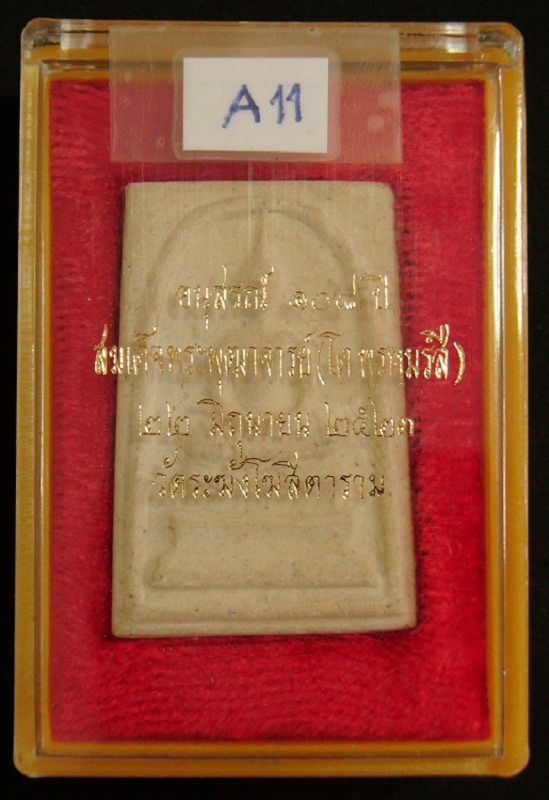 A11
อนุสรณ์ ๑๐๘ ปี
สมเด็จพระพุฒาจารย์ (โต พรหมรังสี)
๒๒ มิถุนายน ๒๕๒๓
วัดระฆังโฆสิตาราม